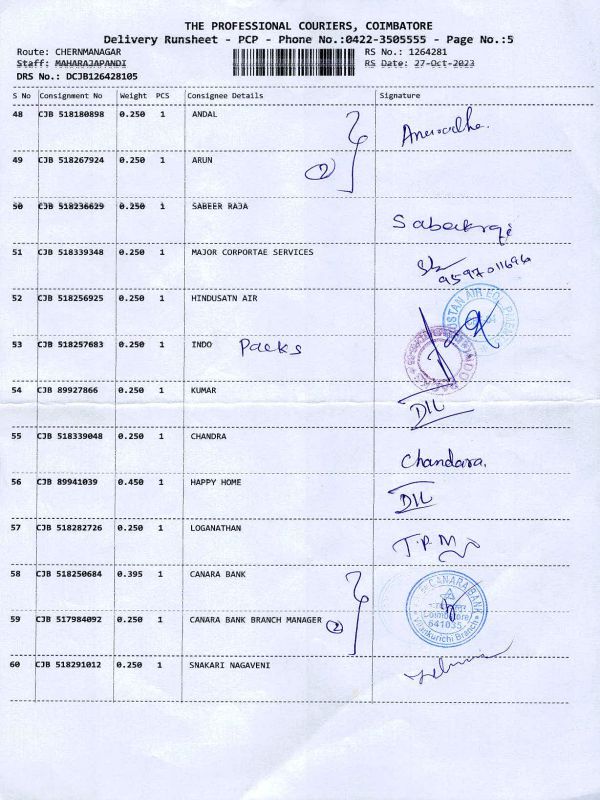 THE PROFESSIONAL COURIERS, COIMBATORE
Delivery Runsheet - PCP - Phone No.:0422-3505555 - Page No.:5
Route: CHERNMANAGAR RS No.: 1264281
Staff: MAHARAJAPANDI RS Date: 27-Oct-2023
DRS No.: DCJB126428105
S No Consignment No Weight PCS Consignee Details Signature
48 CJB 518180898 0.250 1 ANDAL
49 CJB 518267924 0.250 1 ARUN 2
50 CJB 518236629 0.250 1 SABEER RAJA
51 CJB 518339348 0.250 1 MAJOR CORPORTAE SERVICES 9597011696
52 CJB 518256925 0.250 1 HINDUSATN AIR
53 CJB 518257683 0.250 1 INDO Packs
54 CJB 89927866 0.250 1 KUMAR DIL
55 CJB 518339048 0.250 1 CHANDRA Chandara.
56 CJB 89941039 0.450 1 HAPPY HOME DIL
57 CJB 518282726 0.250 1 LOGANATHAN T.P.M
58 CJB 518250684 0.395 1 CANARA BANK CANARA BANK
Coimbatore
641035
59 CJB 517984092 0.250 1 CANARA BANK BRANCH MANAGER 2 Vilankurichi Branch
60 CJB 518291012 0.250 1 SNAKARI NAGAVENI